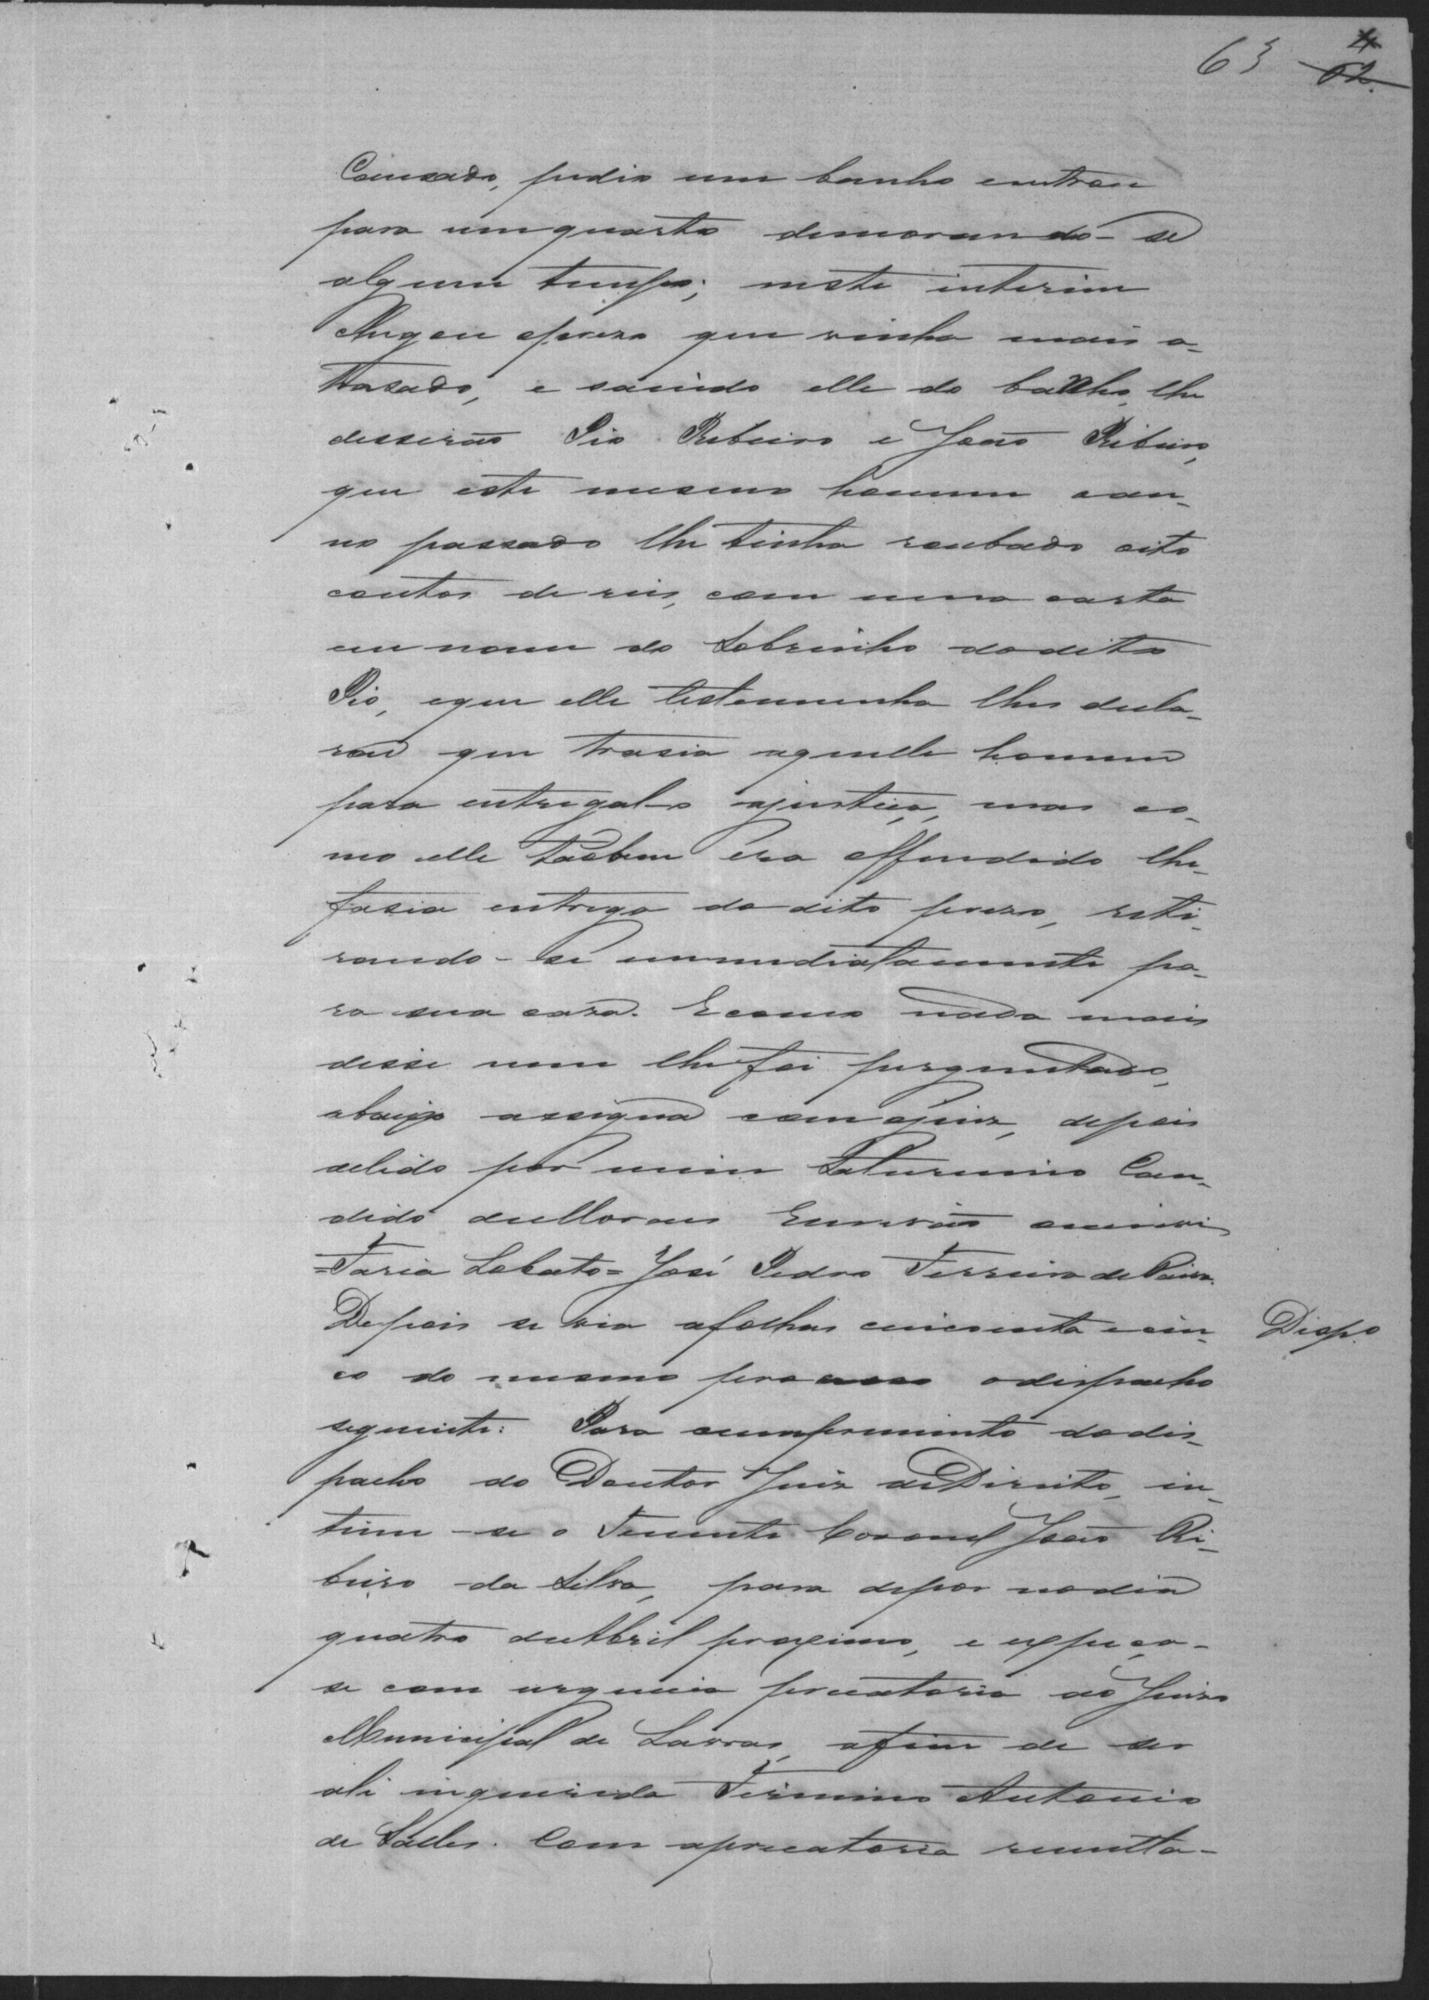 63 4
62.
Cansado, pedio um banho entrou
para umquarto demorando-se
algum tempo; neste interim
chegou opreso que vinha mais a-
trasado, e saindo elle do banho, lhe
disserão Pio Ribeiro e João Ribeiro,
que este mesmo homem oan-
no passado lhe tinha roubado oito
contos de reis, com uma carta
em nome do Sobrinho dodito
Pio, eque elle testemunha lhes decla-
rou que trasia aquelle homem
para entregal-o ajustiça, mas co-
mo elle também era offendido lhe
fasia entrega do dito preso, reti-
rando-se immediatamente pa-
ra sua casa. Ecomo nada mais
disse nem lhe foi perguntado,
abaixo assigna com ojuiz, depois
delido por mim Saturnino Can-
dido deMoraes Escrivão escrivi
=Faria Lobato= José Pedro Ferreira de Paiva.
Depois se via afolhas cincoenta ecin- Dispº
co do mesmo processo odespacho
seguinte: Para cumprimento dodes-
pacho do Doutor Juiz deDireito, in-
time-se o Tenente Coronel João Ri-
beiro da Silva, para depor nodia
quatro deAbril proximo, e expeça-
se com urgencia precatoria ao Juizo
Municipal de Lavras, afim de ser
ali inquerida Firmino Antonio
de Salles. Com aprecatoria remetta-